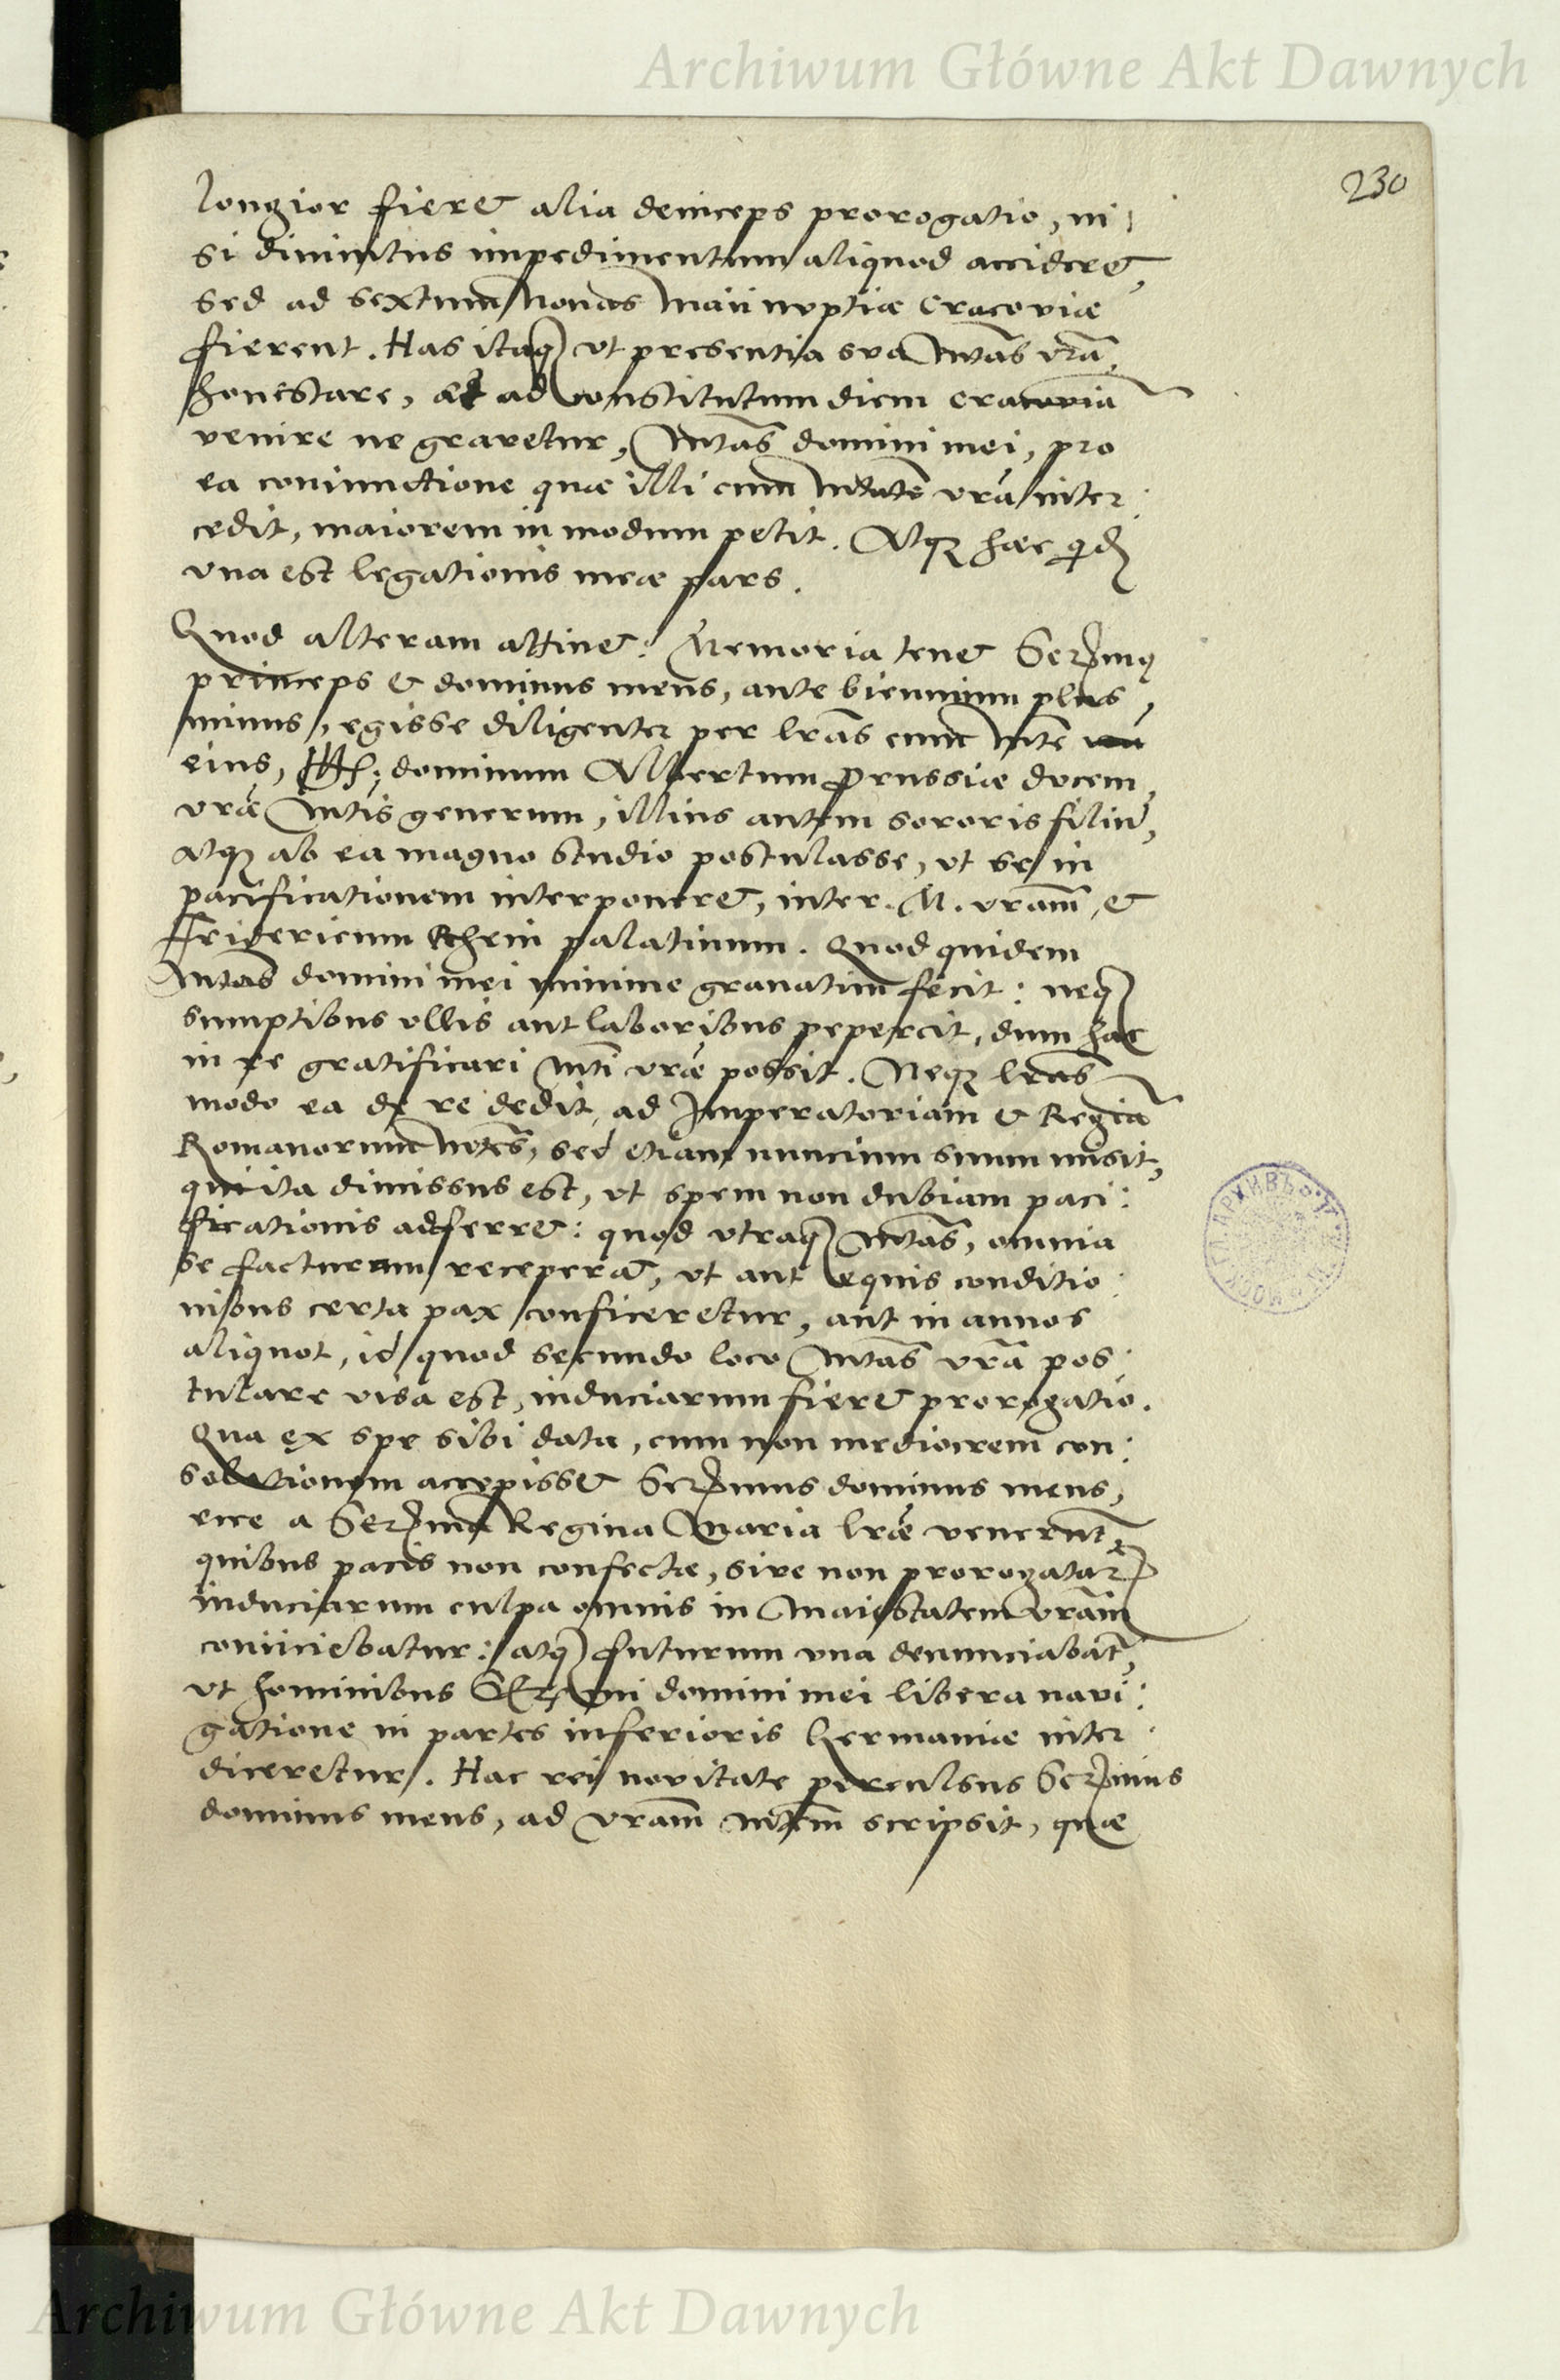 Archiwum Główne Akt Dawnych
230
longior fieret alia deinceps prorogatio, ni
si divinitus impedimentum aliquod accideret,
sed ad sextum Nonas Maii nuptiæ Cracoviæ
fierent. Has itaq ut presentia sua Mtas vrã,
honestare, et ad constitutum diem Cracoviã
venire ne gravetur, Mtas domini mei, pro
ea coniunctione quæ illi cum Mtate vrã inter:
cedit, maiorem in modum petit. Atq hæc qd
una est legationis meæ pars.
Quod alteram attinet: Memoria tenet Sermq
princeps et dominus meus, ante biennium plus
minus, egisse diligenter per lrãs cum Mte
eius, dominum Albertum Prussiæ ducem,
vræ Mtis generum, illius autem sororis filiũ,
atq ab ea magno studio postulasse, ut se in
pacificationem interponeret, inter. M. vram, et
Fridericum Rhein palatinum. Quod quidem
Mtas domini mei minime gravatim fecit: neq
sumptibus ullis aut laboribus pepercit, dum hac
in re gratificari Mti vræ possit. Neq lras
modo ea de re dedit, ad Imperatoriam et Regiã
Romanorum Mtes, sed etiam nuncium suum misit,
qui ita dimissus est, ut spem non dubiam paci:
ficationis adferret: quod utraq Mtas, omnia
se facturam receperat, ut aut equis conditio:
nibus certa pax conficeretur, aut in annos
aliquot, id quod secundo loco Mtas vrã pos:
tulare visa est, induciarum fieret prorogatio.
Qua ex spe sibi data, cum non mediocrem con:
solationem accepisset Sermus dominus meus,
ecce a Serma Regina Maria lræ venerunt,
quibus pacis non confectæ, sive non prorogatar
induciarum culpa omnis in Maiestatem vram
coniiciebatur: atq futurum una denunciabat,
ut hominibus Sermi domini mei libera navi:
gatione in partes inferioris Germaniæ inter:
diceretur. Hac rei novitate perculsus Sermus
dominus meus, ad vram Mtem scripsit, quæ
Archiwum Główne Akt Dawnych